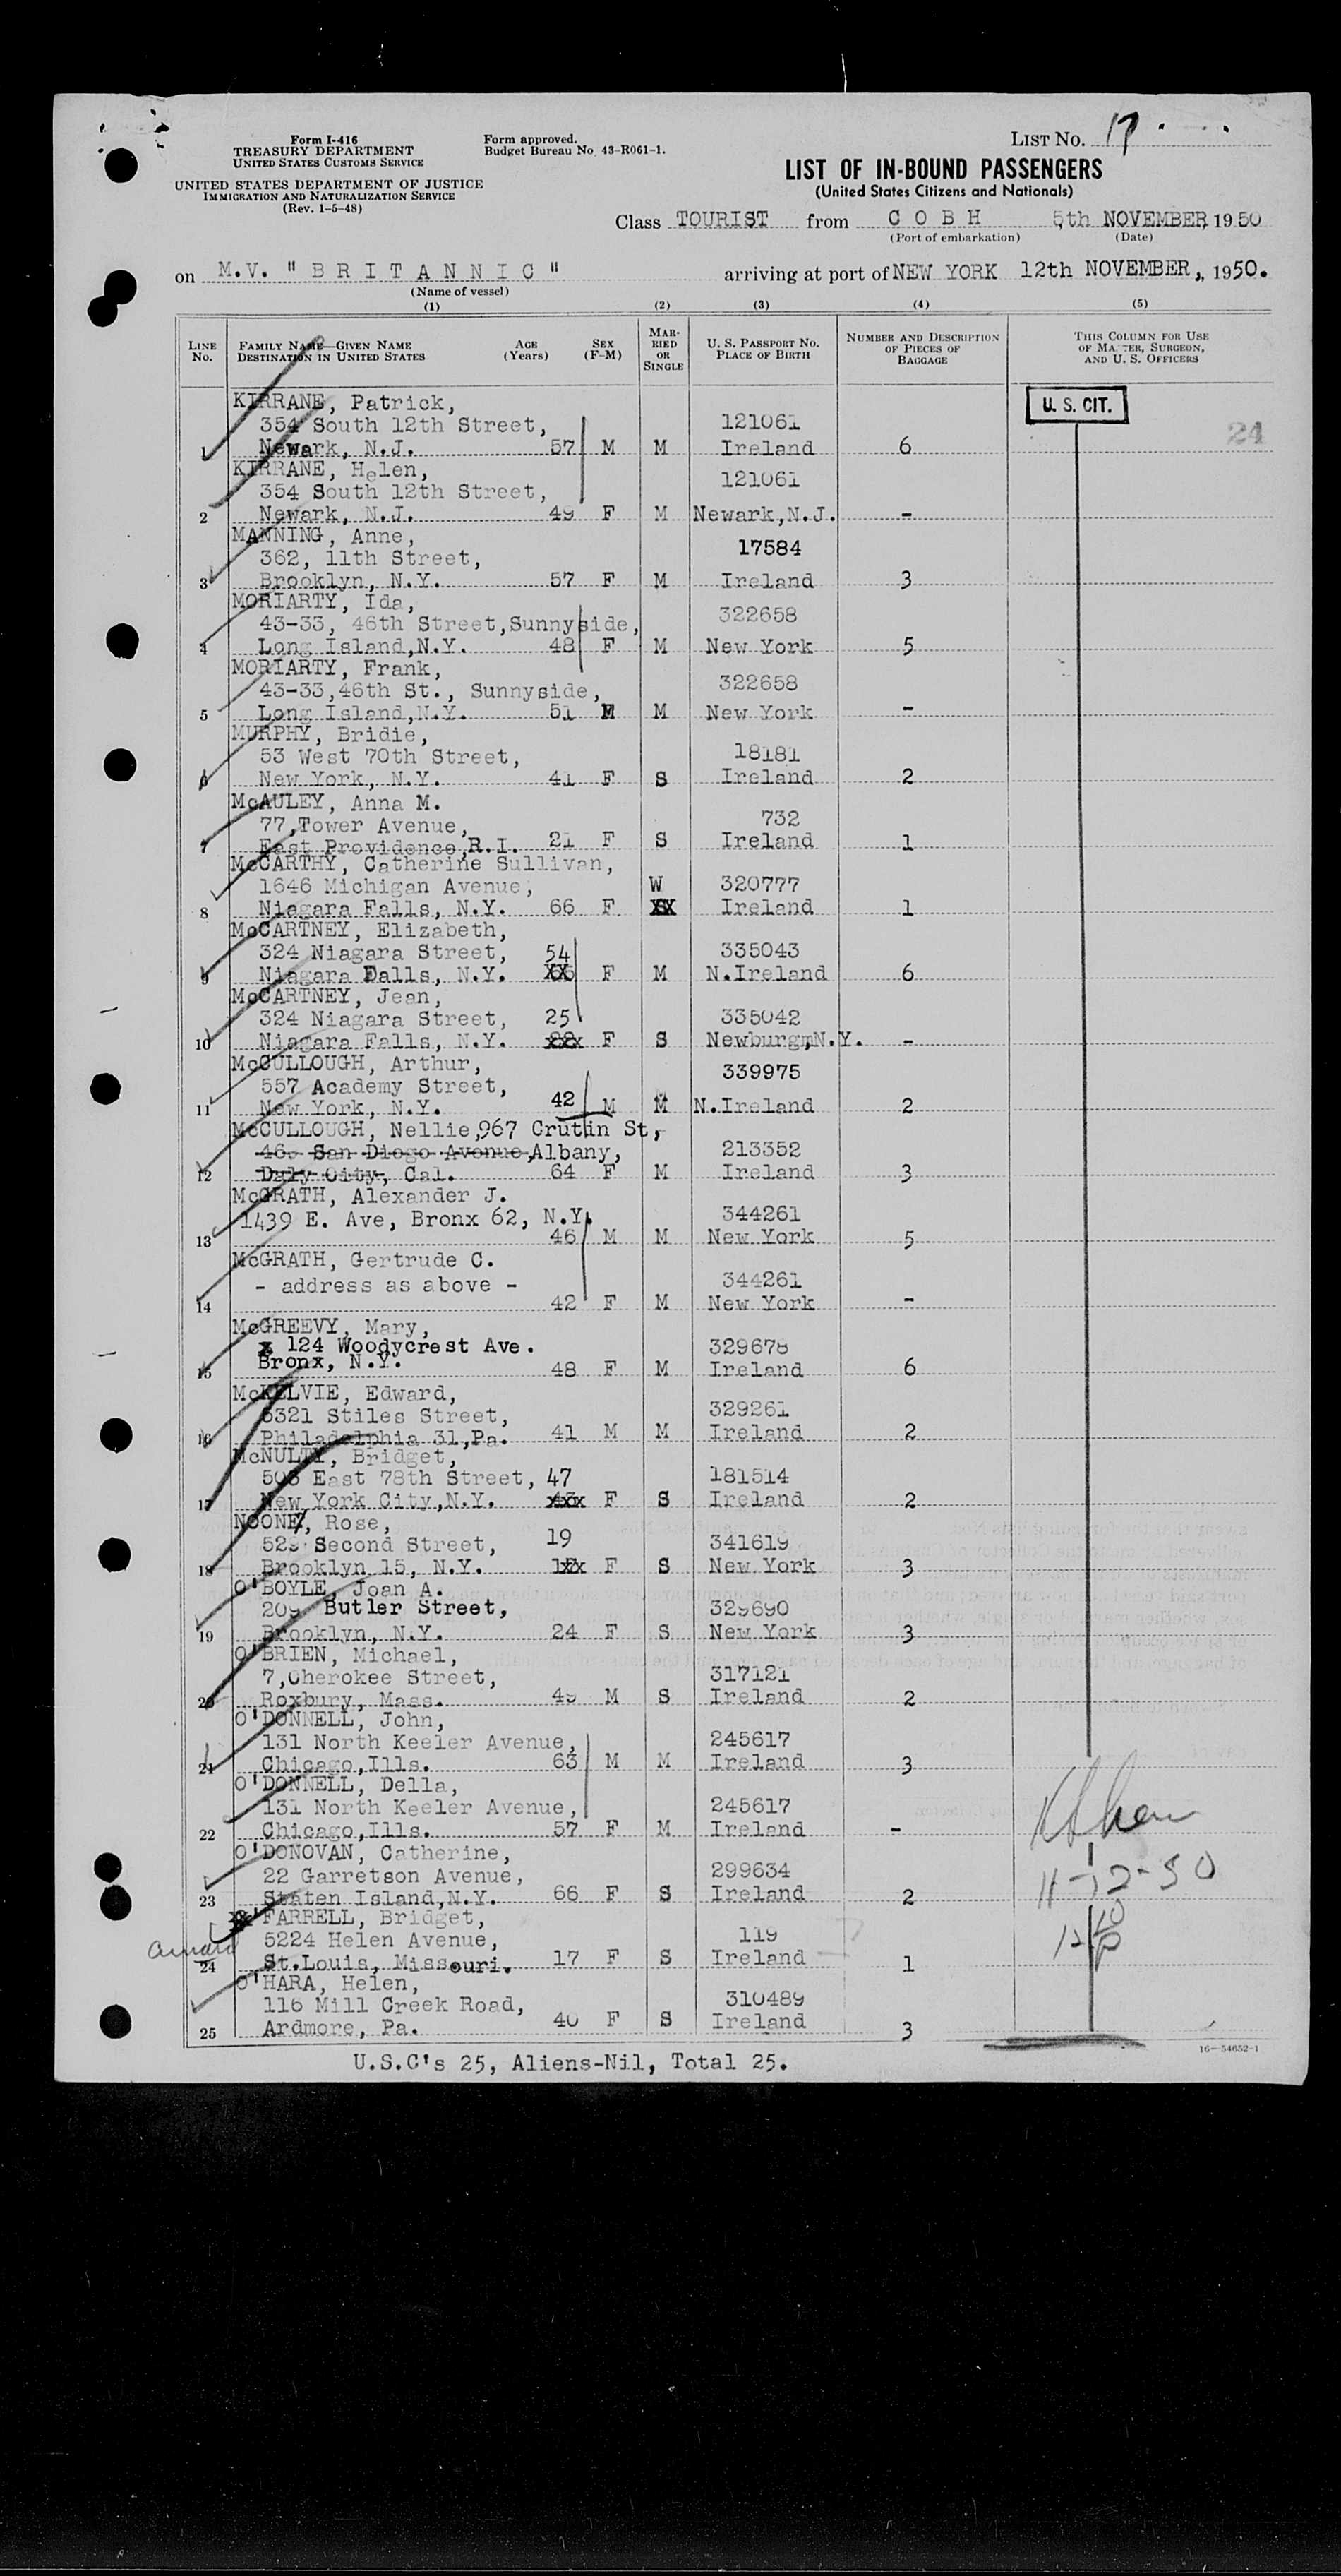 LIST No. 17
Form I-416
TREASURY DEPARTMENT
UNITED STATES CUSTOMS SERVICE
Form approved.
Budget Bureau No. 43-R061-1.
UNITED STATES DEPARTMENT OF JUSTICE
IMMIGRATION AND NATURALIZATION SERVICE
(Rev. 1-5-48)
LIST OF IN-BOUND PASSENGERS
(United States Citizens and Nationals)
Class TOURIST from C O B H 5th NOVEMBER, 1950
(Port of embarkation) (Date)
on M.V. "B R I T A N N I C" arriving at port of NEW YORK 12th NOVEMBER, 1950.
(Name of vessel)
(1) (2) (3) (4) (5)
LINE No. FAMILY NAME—GIVEN NAME DESTINATION IN UNITED STATES AGE (Years) SEX (F-M) MARRIED OR SINGLE U. S. PASSPORT No. PLACE OF BIRTH NUMBER AND DESCRIPTION OF PIECES OF BAGGAGE THIS COLUMN FOR USE OF MASTER, SURGEON, AND U. S. OFFICERS
U. S. CIT.
24
KIRRANE, Patrick,
354 South 12th Street, 121061
1 Newark, N.J. 57 M M Ireland 6
KIRRANE, Helen,
354 South 12th Street, 121061
2 Newark, N.J. 49 F M Newark,N.J. -
MANNING, Anne,
362, 11th Street, 17584
3 Brooklyn, N.Y. 57 F M Ireland 3
MORIARTY, Ida,
43-33, 46th Street,Sunnyside, 322658
4 Long Island,N.Y. 48 F M New York 5
MORIARTY, Frank,
43-33,46th St., Sunnyside, 322658
5 Long Island,N.Y. 51 M M New York -
MURPHY, Bridie,
53 West 70th Street, 18181
6 New York, N.Y. 41 F S Ireland 2
McAULEY, Anna M.
77,Tower Avenue, 732
7 East Providence,R.I. 21 F S Ireland 1
McCARTHY, Catherine Sullivan,
1646 Michigan Avenue, W 320777
8 Niagara Falls, N.Y. 66 F XSX Ireland 1
McCARTNEY, Elizabeth,
324 Niagara Street, 54 335043
9 Niagara Dalls, N.Y. XX F M N.Ireland 6
McCARTNEY, Jean,
324 Niagara Street, 25 335042
10 Niagara Falls, N.Y. xxx F S Newburgh,N.Y. -
McCULLOUGH, Arthur,
557 Academy Street, 339975
11 New York, N.Y. 42 M M N.Ireland 2
McCULLOUGH, Nellie,967 Crutin St,
San Diogo Avenue,Albany, 213352
12 Daly City, Cal. 64 F M Ireland 3
McGRATH, Alexander J.
1439 E. Ave, Bronx 62, N.Y. 344261
13 46 M M New York 5
McGRATH, Gertrude C.
- address as above - 344261
14 42 F M New York -
McGREEVY, Mary,
x 124 Woodycrest Ave. 329678
15 Bronx, N.Y. 48 F M Ireland 6
McKELVIE, Edward,
6321 Stiles Street, 329261
16 Philadelphia 31,Pa. 41 M M Ireland 2
McNULTY, Bridget,
East 78th Street, 47 181514
17 New York City,N.Y. xxx F S Ireland 2
NOONE, Rose,
529 Second Street, 19 341619
18 Brooklyn 15, N.Y. xx F S New York 3
O'BOYLE, Joan A.
209 Butler Street, 329690
19 Brooklyn, N.Y. 24 F S New York 3
O'BRIEN, Michael,
7,Cherokee Street, 317121
20 Roxbury, Mass. 49 M S Ireland 2
O'DONNELL, John,
131 North Keeler Avenue, 245617
21 Chicago,Ills. 63 M M Ireland 3
O'DONNELL, Della,
131 North Keeler Avenue, 245617
22 Chicago,Ills. 57 F M Ireland -
O'DONOVAN, Catherine,
22 Garretson Avenue, 299634 11-12-50
23 Staten Island,N.Y. 66 F S Ireland 2
FARRELL, Bridget,
5224 Helen Avenue, 119
24 St.Louis, Missouri. 17 F S Ireland 1
O'HARA, Helen,
116 Mill Creek Road, 310489
25 Ardmore, Pa. 40 F S Ireland 3
16—54652-1
U.S.C's 25, Aliens-Nil, Total 25.